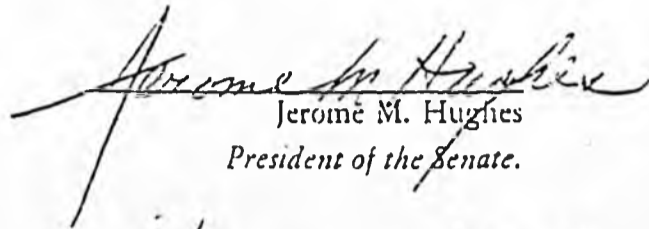 Jerome M Hughes
Jerome M. Hughes
President of the Senate.